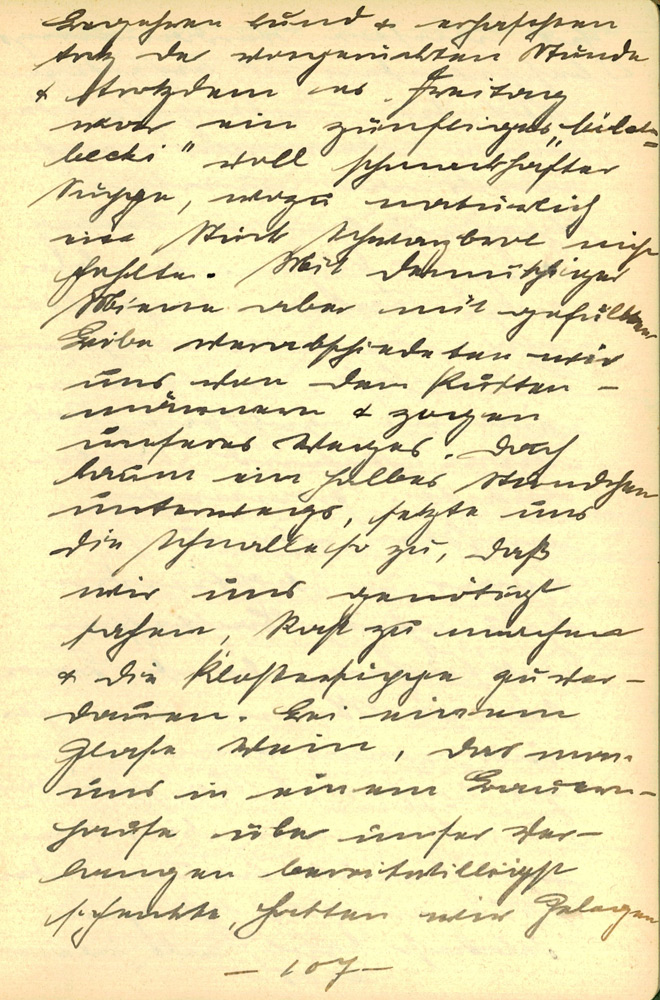 Begehren kund & erhaschten
trotz der vorgerückten Stunde
& trotzdem es Freitag
war ein zünftiges
becki" voll schmackhafter
Suppe, wozu natürlich
ein Stück Schwarzbrot nicht
fehlte. Mit demütiger
Miene aber mit gefülltem
Leibe verabschiedeten wir
uns von den Kutten-
männern & zogen
unseres Weges. Doch
kaum ein halbes Stündchen
unterwegs, setzte uns
die Schnalle so zu, daß
wir uns genötigt
sahen, Rast zu machen
& die Klostersuppe zu ver-
dauen. Bei einem
Glase Wein, das man
uns in einem Bauern-
hause über unser Ver-
langen bereitwilligst
schenkte, hatten wir Gelegen
- 107 -